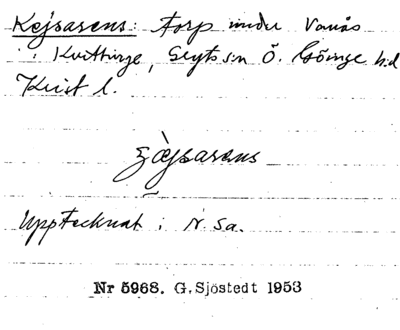 Kejsarens: torp under Vanås
i Kvittinge, Gryts sn Ö. Göinge hd
Krist l.
Upptecknat i N. Sa.
Nr 5968. G. Sjöstedt 1953